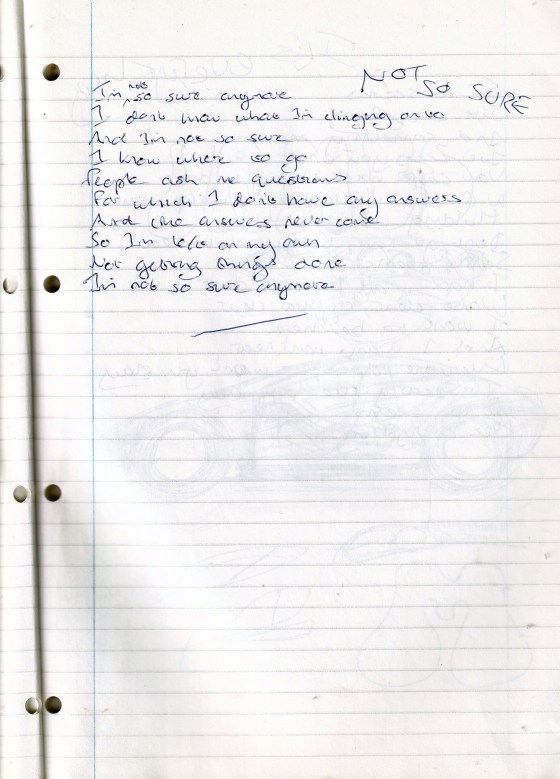 NOT SO SURE
I'm not so sure anymore
I don't know what I'm clinging onto
And I'm not so sure
I know where to go
People ask me questions
For which I don't have any answers
And the answers never come
So I'm left on my own
Not getting things done
I'm not so sure anymore